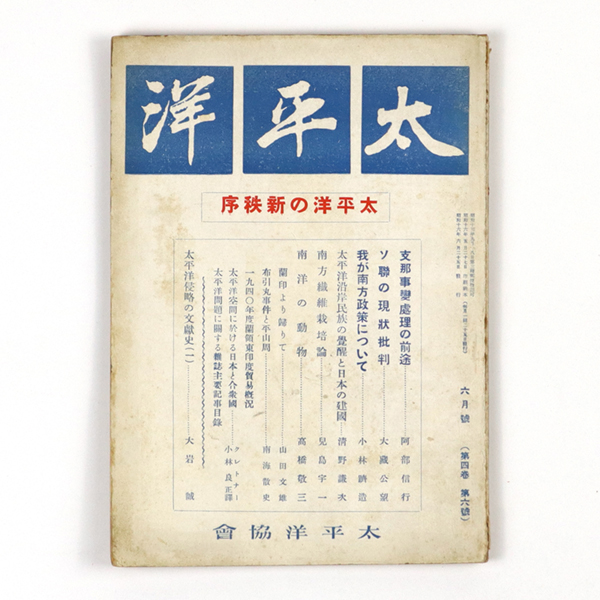 太平洋
太平洋の新秩序
支那事變處理の前途 阿部信行
ソ聯の現狀批判 大藏公望
我が南方政策について 小林躋造
太平洋沿岸民族の覺醒と日本の建國 清野謙次
南方纖維栽培論 兒島宇一
南洋の動物 高橋敬三
蘭印より歸りて 山田文雄
布引丸事件と平山周 南海散史
一九四〇年度蘭領東印度貿易槪況
太平洋空間に於ける日本と合衆國 クレトナー 小林良正譯
太平洋問題に關する雜誌主要記事目錄
太平洋侵略の文獻史(一) 大岩誠
六月號 (第四卷 第六號)
太平洋協會